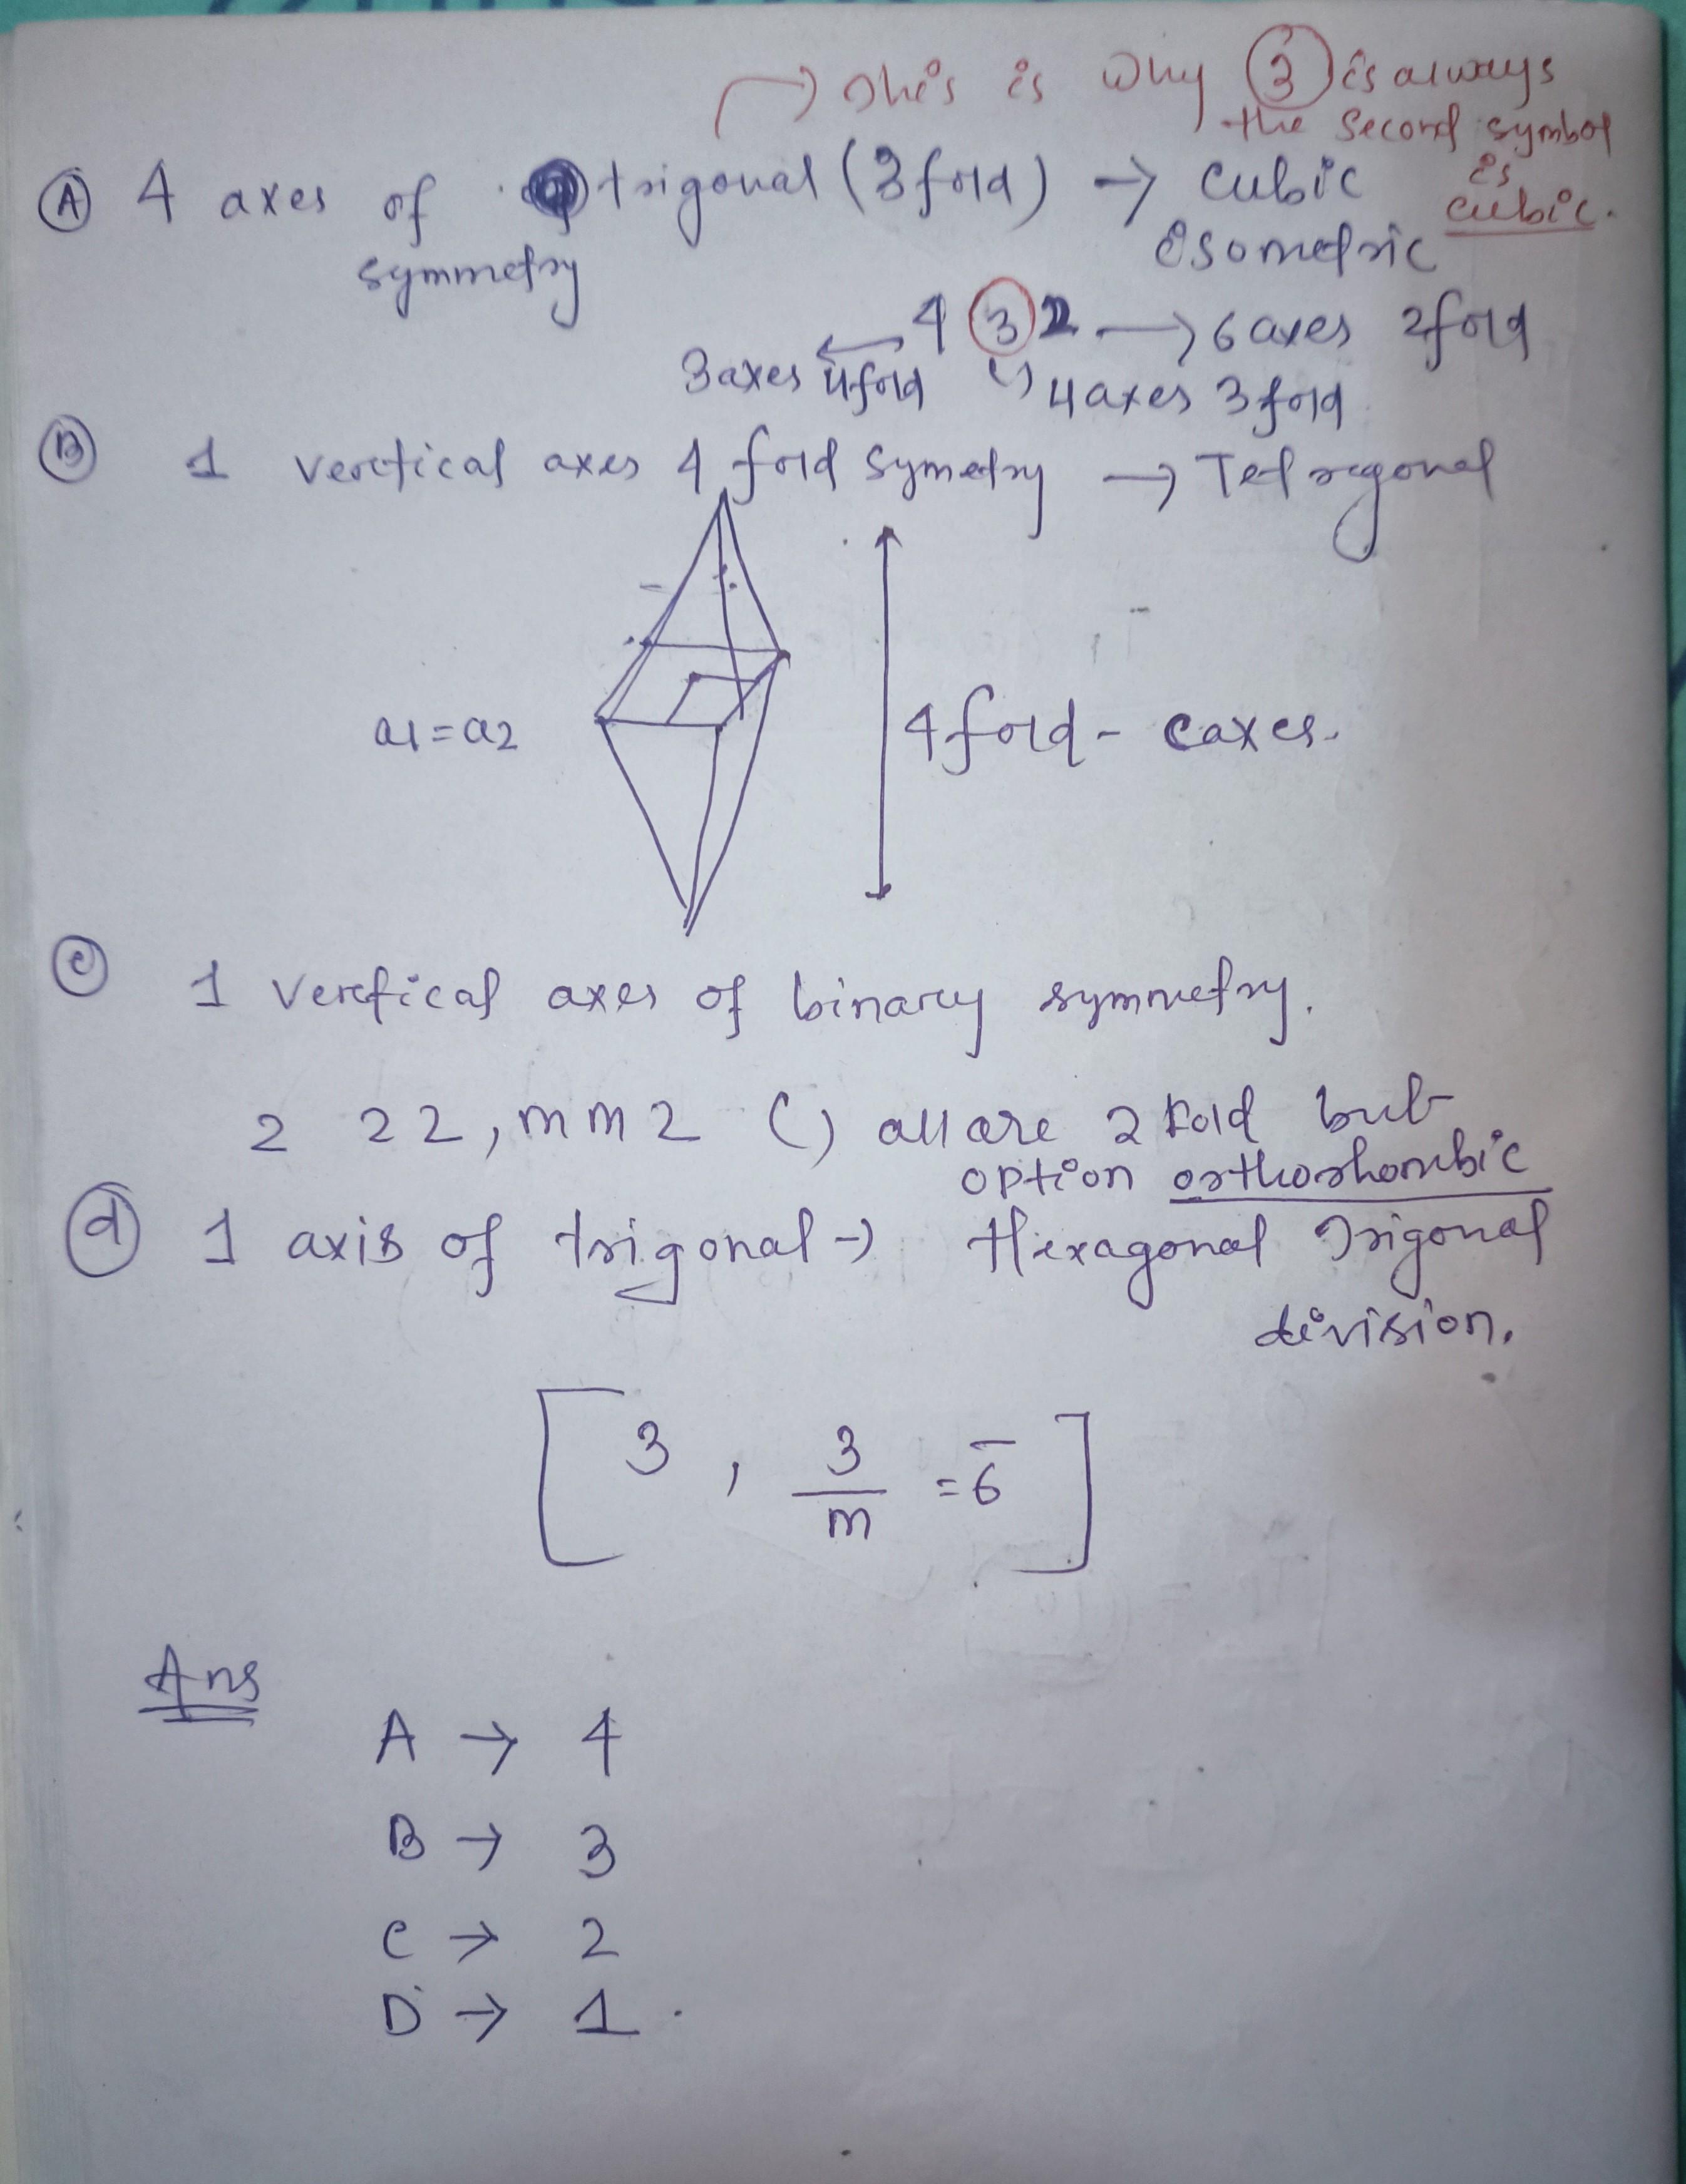 → This is why ③ is always
the second symbol
is
cubic.
Ⓐ 4 axes of trigonal (3fold) → cubic
symmetry isometric
4 ③ 2 → 6 axes 2fold
3axes 4fold 4axes 3fold
Ⓑ 1 vertical axes 4 fold symetry → Tetragonal
a1=a2 4fold- caxes.
Ⓒ 1 vertical axes of binary symmetry.
2 22, mm2 all are 2 fold but
option orthorhombic
ⓓ 1 axis of trigonal → Hexagonal Trigonal
division.
[3, 3/m = 6̅]
Ans
A → 4
B → 3
C → 2
D → 1.